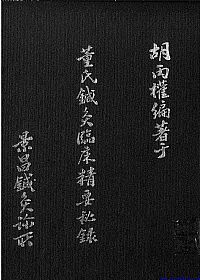 胡丙權編著于
董氏鍼灸臨床精要祕錄
景昌鍼灸診所